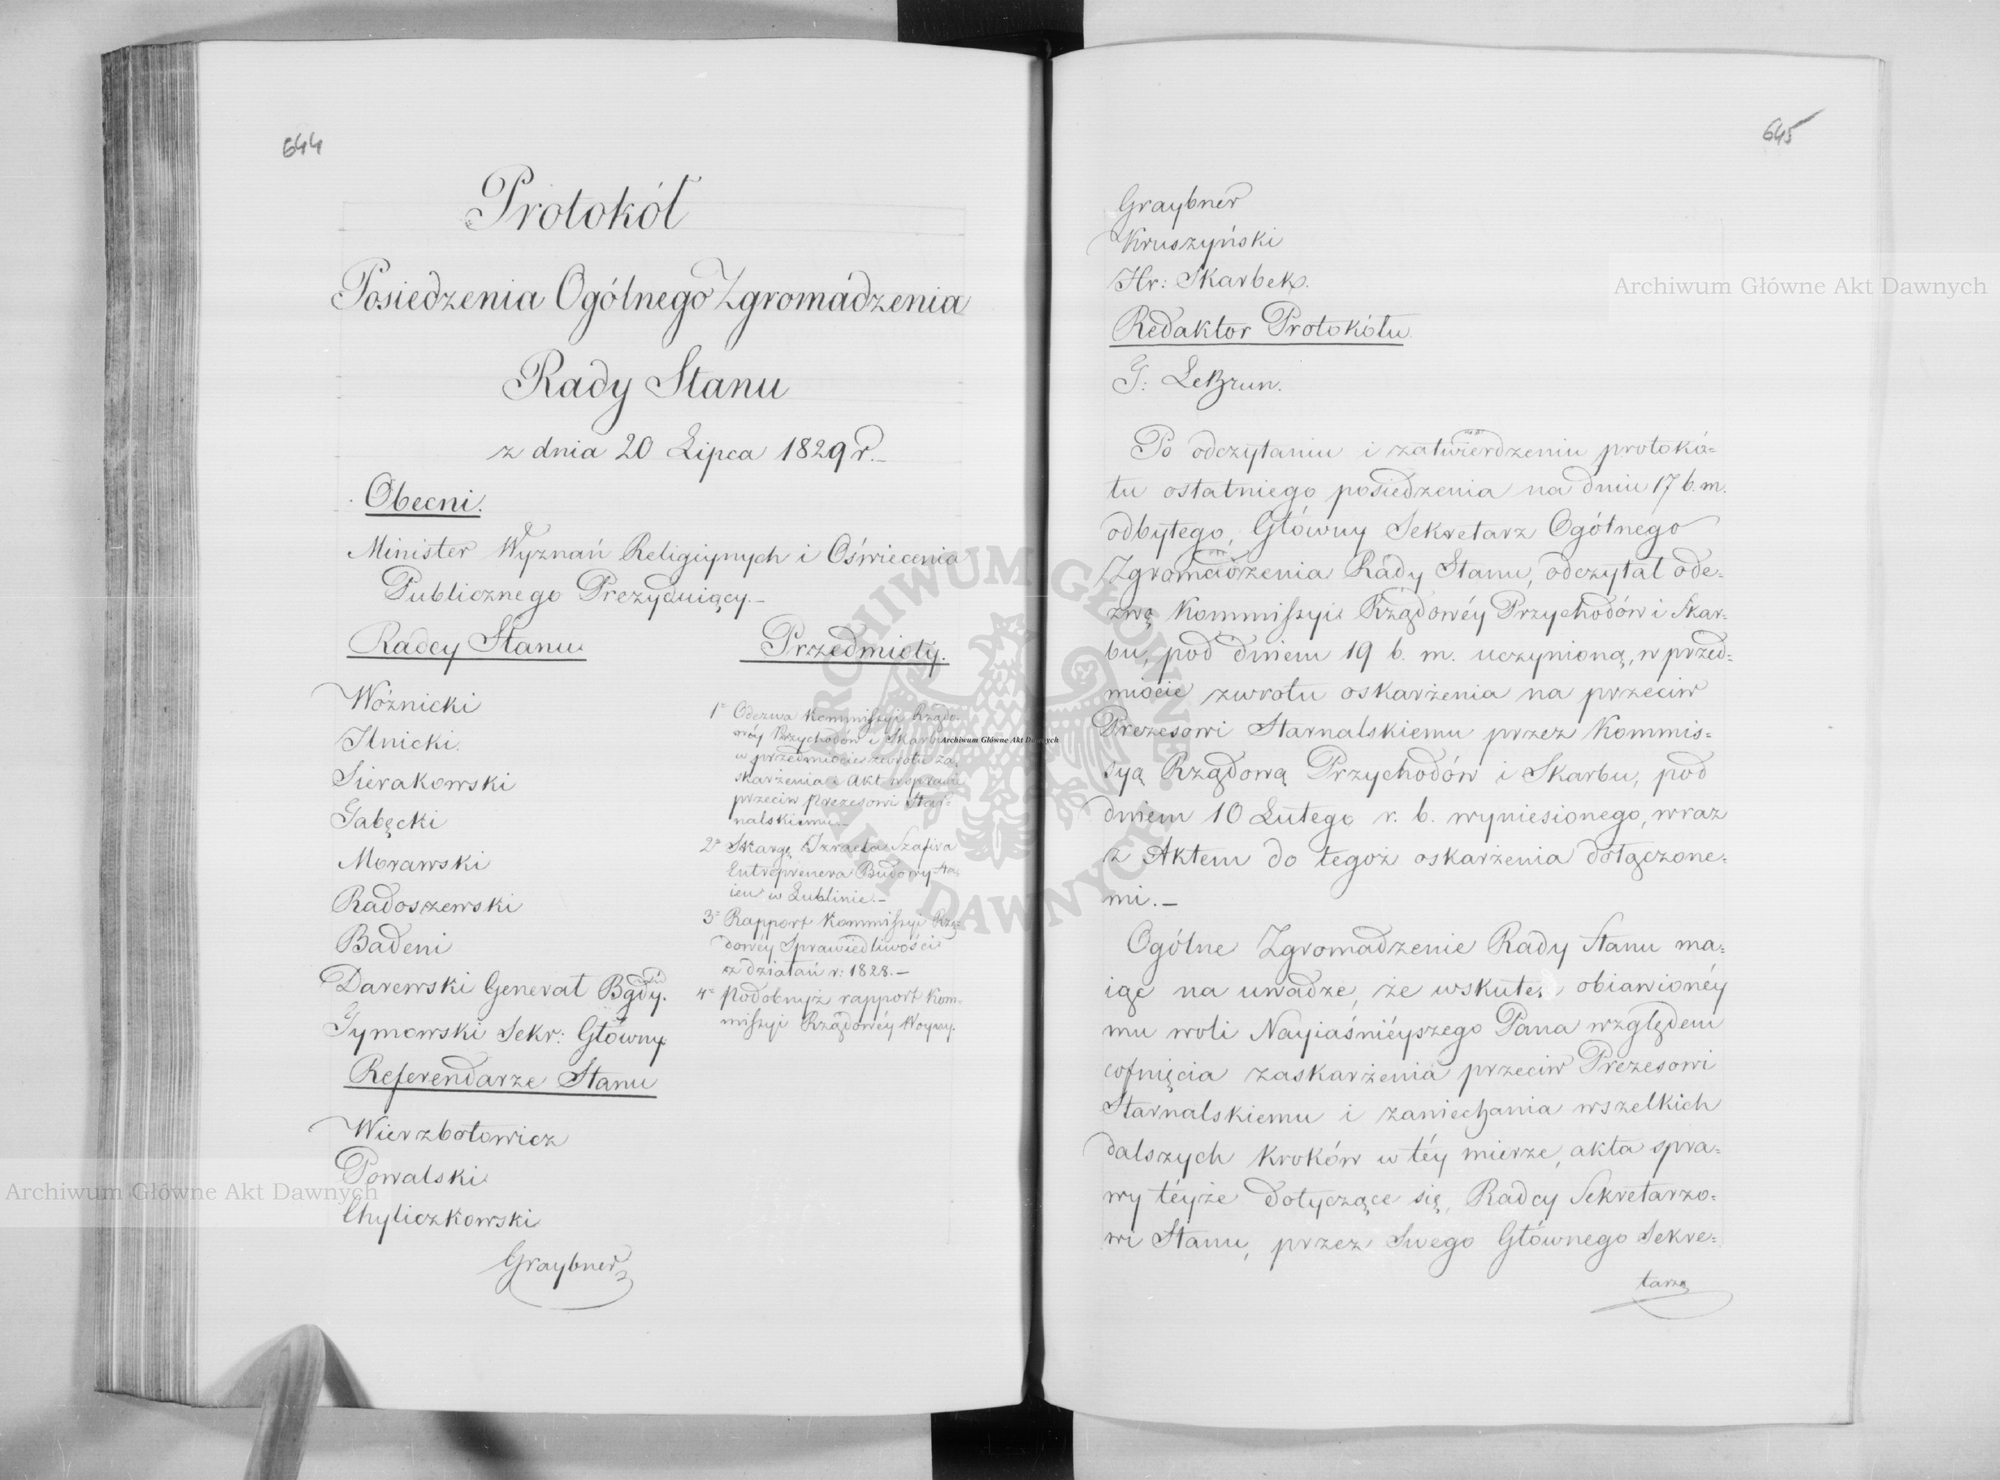 644
Protokół
Posiedzenia Ogólnego Zgromadzenia
Rady Stanu
z dnia 20 Lipca 1829 r.
Obecni.
Minister Wyznań Religiynych i Oświecenia
Publicznego Prezyduiący.
Radcy Stanu
Woźnicki
Ilnicki
Sierakowski
Gałęcki
Morawski
Radoszewski
Badeni
Darewski Generał Bgdy.
Tymowski Sekr: Główny
Referendarze Stanu
Wierzbołowicz
Powalski
Chyliczkowski
Graybner
Przedmioty.
1° Odezwa Kommissyi Rządo-
wéy Przychodów i Skarbu
w przedmiocie zwrotu za-
skarżenia i Akt w sprawie
przeciw Prezesowi Star-
nalskiemu.
2° Skargę Izraela Szafira
Entreprenera Budowy Sta-
ien w Lublinie.
3° Rapport Kommissyi Rzą-
dowéy Sprawiedliwości
z działań r: 1828.
4° Podobnyż rapport Kom-
missyi Rządowéy Woyny.
645
Graybner
Kruszyński
Hr: Skarbek.
Redaktor Protokółu.
G: LeBrun.
Po odczytaniu i zatwierdzeniu protokó-
łu ostatniego posiedzenia na dniu 17 b. m.
odbytego, Główny Sekretarz Ogólnego
Zgromadzenia Rady Stanu, odczytał ode-
zwę Kommissyi Rządowéy Przychodów i Skar-
bu, pod dniem 19 b. m. uczynioną, w przed-
miocie zwrotu oskarżenia na przeciw
Prezesowi Starnalskiemu przez Kommis-
syą Rządową Przychodów i Skarbu, pod
dniem 10 Lutego r. b. wyniesionego, wraz
z Aktem do tegoż oskarżenia dołączone-
mi.
Ogólne Zgromadzenie Rady Stanu ma-
iąc na uwadze, że wskutek obiawionéy
mu woli Nayiaśniéyszego Pana względem
cofnięcia zaskarżenia przeciw Prezesowi
Starnalskiemu i zaniechania wszelkich
dalszych kroków w téy mierze, akta spra-
wy téyże dotyczące się, Radcy Sekretarzo-
wi Stanu, przez Swego Głównego Sekre-
tarza
Archiwum Główne Akt Dawnych
Archiwum Główne Akt Dawnych
Archiwum Główne Akt Dawnych
ARCHIWUM GŁÓWNE AKT DAWNYCH